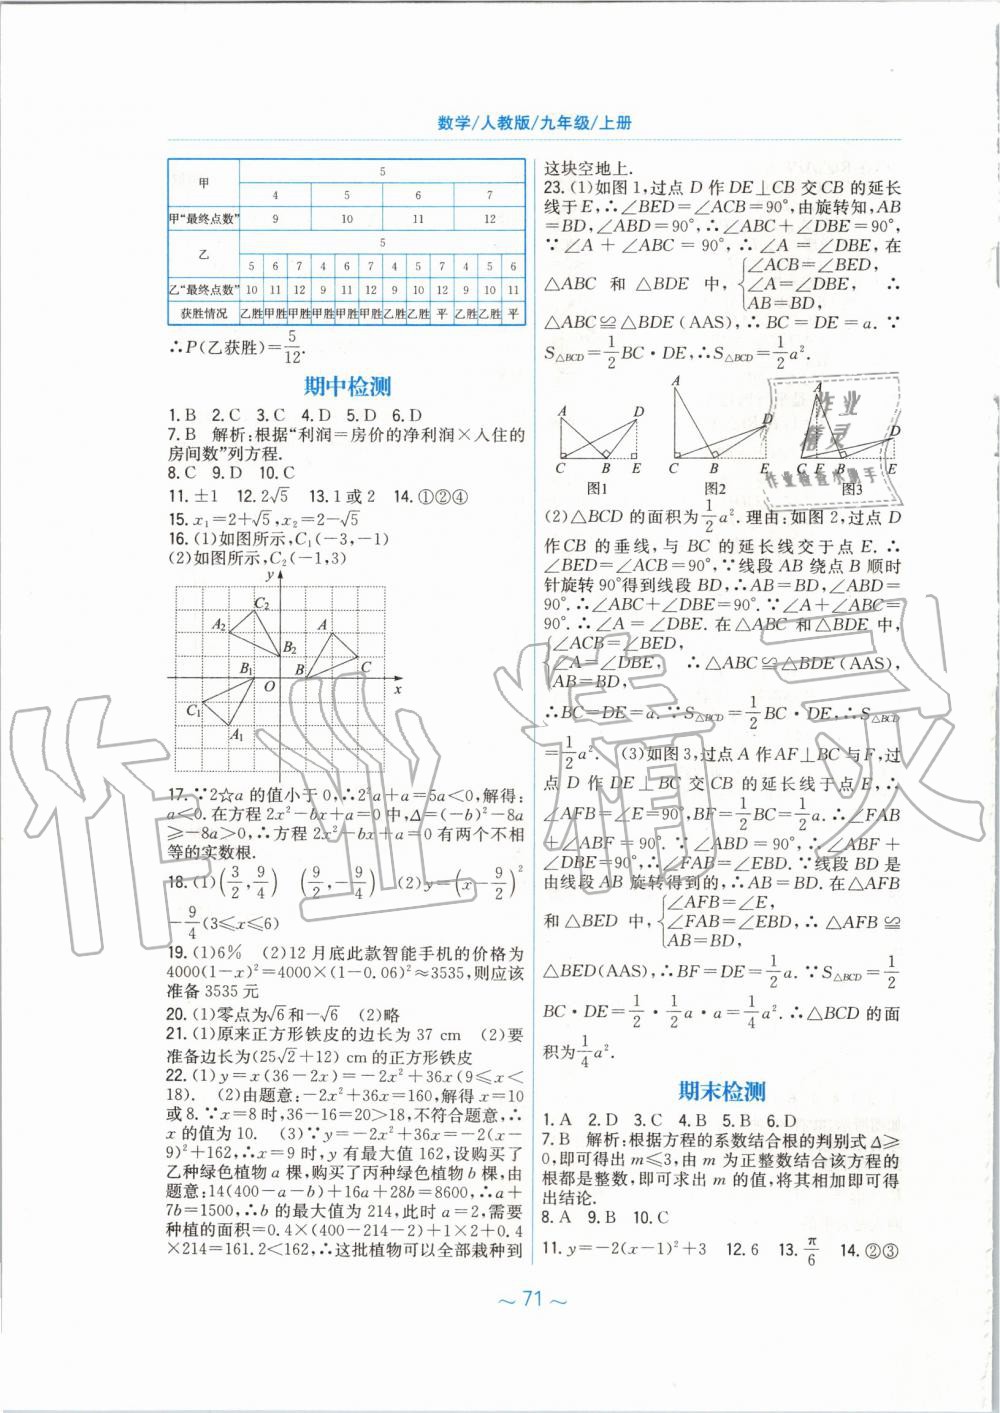 数学/人教版/九年级/上册
甲 5
4 5 6 7
甲“最终点数” 9 10 11 12
乙 5
5 6 7 4 6 7 4 5 7 4 5 6
乙“最终点数” 10 11 12 9 11 12 9 10 12 9 10 11
获胜情况 乙胜 甲胜 甲胜 甲胜 甲胜 甲胜 乙胜 乙胜 平 乙胜 乙胜 平
∴P(乙获胜)=5/12.
期中检测
1. B 2. C 3. C 4. D 5. D 6. D
7. B 解析:根据“利润=房价的净利润×入住的
房间数”列方程.
8. C 9. D 10. C
11. ±1 12. 2√5 13. 1或2 14. ①②④
15. x₁=2+√5, x₂=2-√5
16. (1)如图所示,C₁(-3,-1)
(2)如图所示,C₂(-1,3)
y
C₂
A₂ A
B₂
C
B₁ O B x
C₁
A₁
17. ∵2☆a 的值小于0,∴2²a+a=5a<0,解得:
a<0.在方程2x²-bx+a=0中,Δ=(-b)²-8a
≥-8a>0,∴方程2x²-bx+a=0有两个不相
等的实数根.
18. (1)(3/2,9/4) (9/2,-9/4) (2)y=(x-9/2)²
-9/4(3≤x≤6)
19. (1)6% (2)12月底此款智能手机的价格为
4000(1-x)²=4000×(1-0.06)²≈3535,则应该
准备3535元
20. (1)零点为√6和-√6 (2)略
21. (1)原来正方形铁皮的边长为37 cm (2)要
准备边长为(25√2+12) cm的正方形铁皮
22. (1)y=x(36-2x)=-2x²+36x(9≤x<
18). (2)由题意:-2x²+36x=160,解得x=10
或8.∵x=8时,36-16=20>18,不符合题意,∴
x的值为10. (3)∵y=-2x²+36x=-2(x-
9)²+162,∴x=9时,y有最大值162,设购买了
乙种绿色植物a棵,购买了丙种绿色植物b棵,由
题意:14(400-a-b)+16a+28b=8600,∴a+
7b=1500,∴b的最大值为214,此时a=2,需要
种植的面积=0.4×(400-214-2)+1×2+0.4
×214=161.2<162,∴这批植物可以全部栽种到
这块空地上.
23. (1)如图1,过点D作DE⊥CB交CB的延长
线于E,∴∠BED=∠ACB=90°,由旋转知,AB
=BD,∠ABD=90°,∴∠ABC+∠DBE=90°,
∵∠A+∠ABC=90°,∴∠A=∠DBE,在
△ABC 和 △BDE 中,{∠ACB=∠BED,
∠A=∠DBE, ∴
AB=BD,
△ABC≌△BDE(AAS),∴BC=DE=a.∵
S△BCD=1/2BC·DE,∴S△BCD=1/2a².
A D
C B E
图1
A
D
C B E
图2
A
D
C F B E
图3
作业
精灵
作业检查小助手
(2)△BCD的面积为1/2a².理由:如图2,过点D
作CB的垂线,与BC的延长线交于点E.∴
∠BED=∠ACB=90°,∵线段AB绕点B顺时
针旋转90°得到线段BD,∴AB=BD,∠ABD=
90°.∴∠ABC+∠DBE=90°.∵∠A+∠ABC=
90°.∴∠A=∠DBE.在△ABC和△BDE中,
{∠ACB=∠BED,
∠A=∠DBE, ∴△ABC≌△BDE(AAS),
AB=BD,
∴BC=DE=a.∵S△BCD=1/2BC·DE,∴S△BCD
=1/2a². (3)如图3,过点A作AF⊥BC与F,过
点D作DE⊥BC交CB的延长线于点E,∴
∠AFB=∠E=90°,BF=1/2BC=1/2a.∴∠FAB
+∠ABF=90°.∵∠ABD=90°,∴∠ABF+
∠DBE=90°,∴∠FAB=∠EBD.∵线段BD是
由线段AB旋转得到的,∴AB=BD.在△AFB
和△BED中,{∠AFB=∠E,
∠FAB=∠EBD,∴△AFB≌
AB=BD,
△BED(AAS),∴BF=DE=1/2a.∵S△BCD=1/2
BC·DE=1/2·1/2a·a=1/4a².∴△BCD的面
积为1/4a².
期末检测
1. A 2. D 3. C 4. B 5. B 6. D
7. B 解析:根据方程的系数结合根的判别式Δ≥
0,即可得出m≤3,由m为正整数结合该方程的
根都是整数,即可求出m的值,将其相加即可得
出结论.
8. A 9. B 10. C
11. y=-2(x-1)²+3 12. 6 13. π/6 14. ②③
~ 71 ~
作业精灵